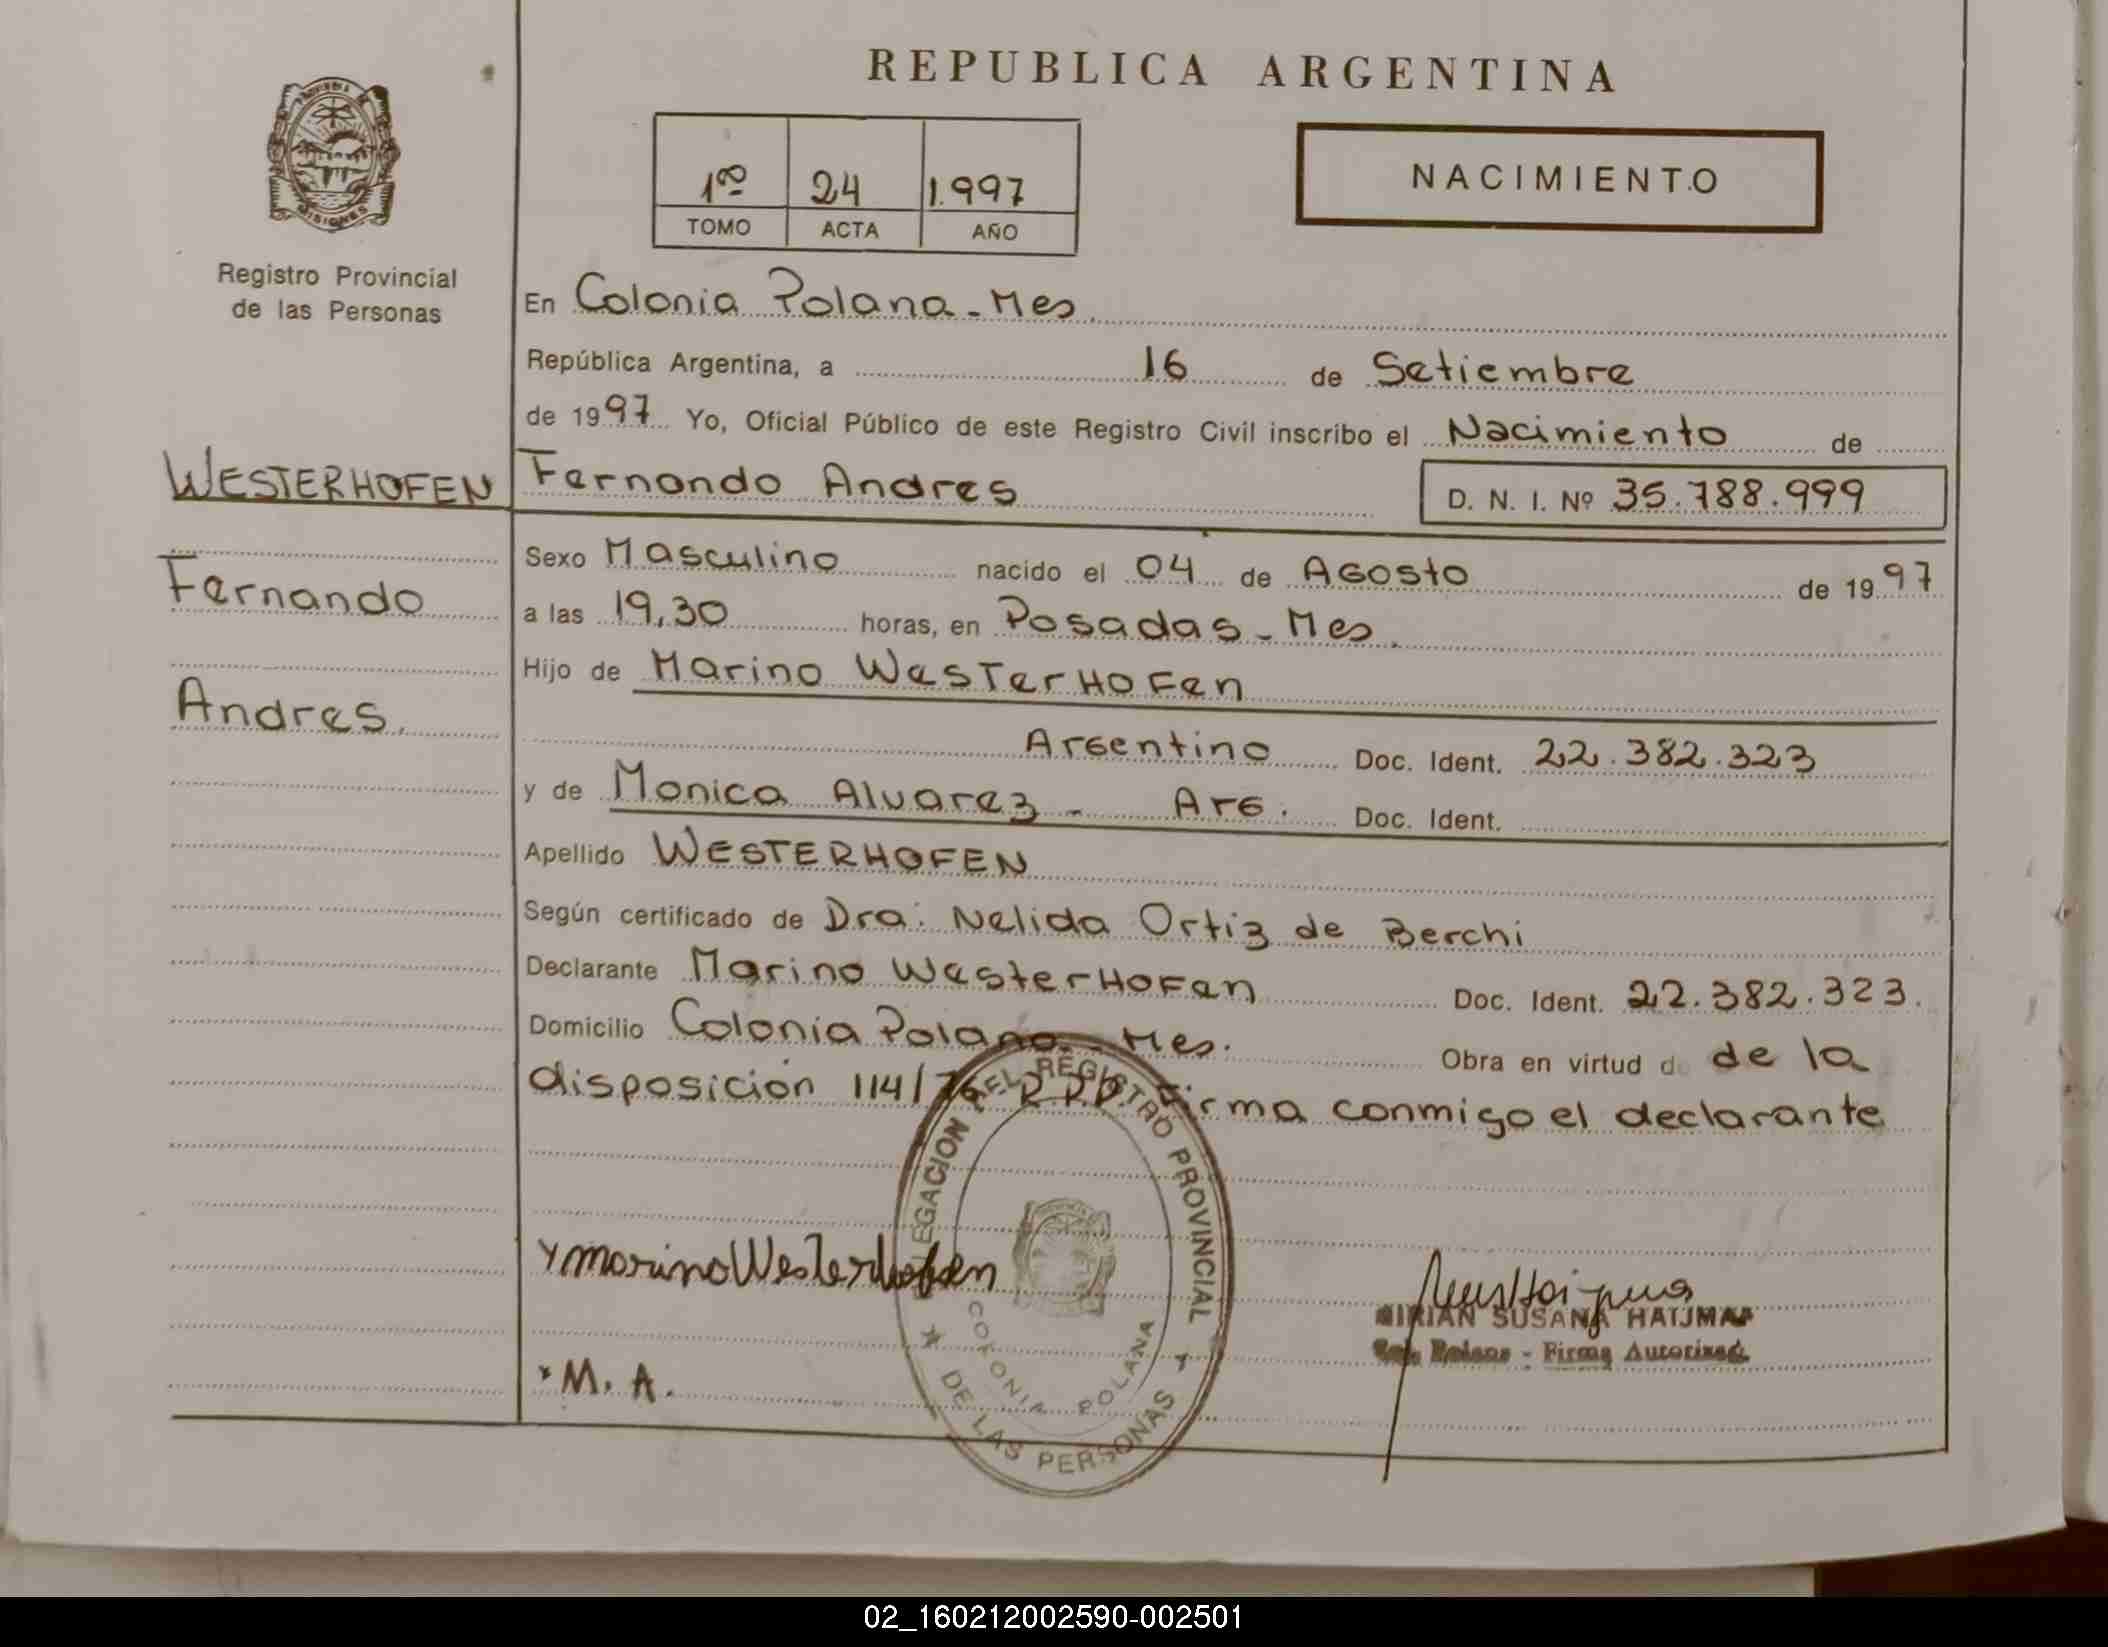 REPUBLICA ARGENTINA
1ro 24 1.997
TOMO ACTA AÑO
NACIMIENTO
MISIONES
Registro Provincial
de las Personas
En Colonia Polana - Mes.
República Argentina, a 16 de Setiembre
de 1997 Yo, Oficial Público de este Registro Civil inscribo el Nacimiento de
WESTERHOFEN Fernando Andres D. N. I. Nº 35.788.999
Sexo Masculino nacido el 04 de Agosto de 1997
Fernando
a las 19,30 horas, en Posadas - Mes.
Hijo de Marino Westerhofen
Andres.
Argentino Doc. Ident. 22.382.323
y de Monica Alvarez - Arg. Doc. Ident.
Apellido WESTERHOFEN
Según certificado de Dra: Nelida Ortiz de Berchi
Declarante Marino Westerhofen Doc. Ident. 22.382.323.
Domicilio Colonia Polana - Mes. Obra en virtud de de la
disposición 114/76 R.P.P. Firma conmigo el declarante
DELEGACION DEL REGISTRO PROVINCIAL
DE LAS PERSONAS
COLONIA POLANA
x Marino Westerhofen
MIRIAN SUSANA HAIJMAN
Col. Polana - Firma Autorizada
x M. A.
02_160212002590-002501